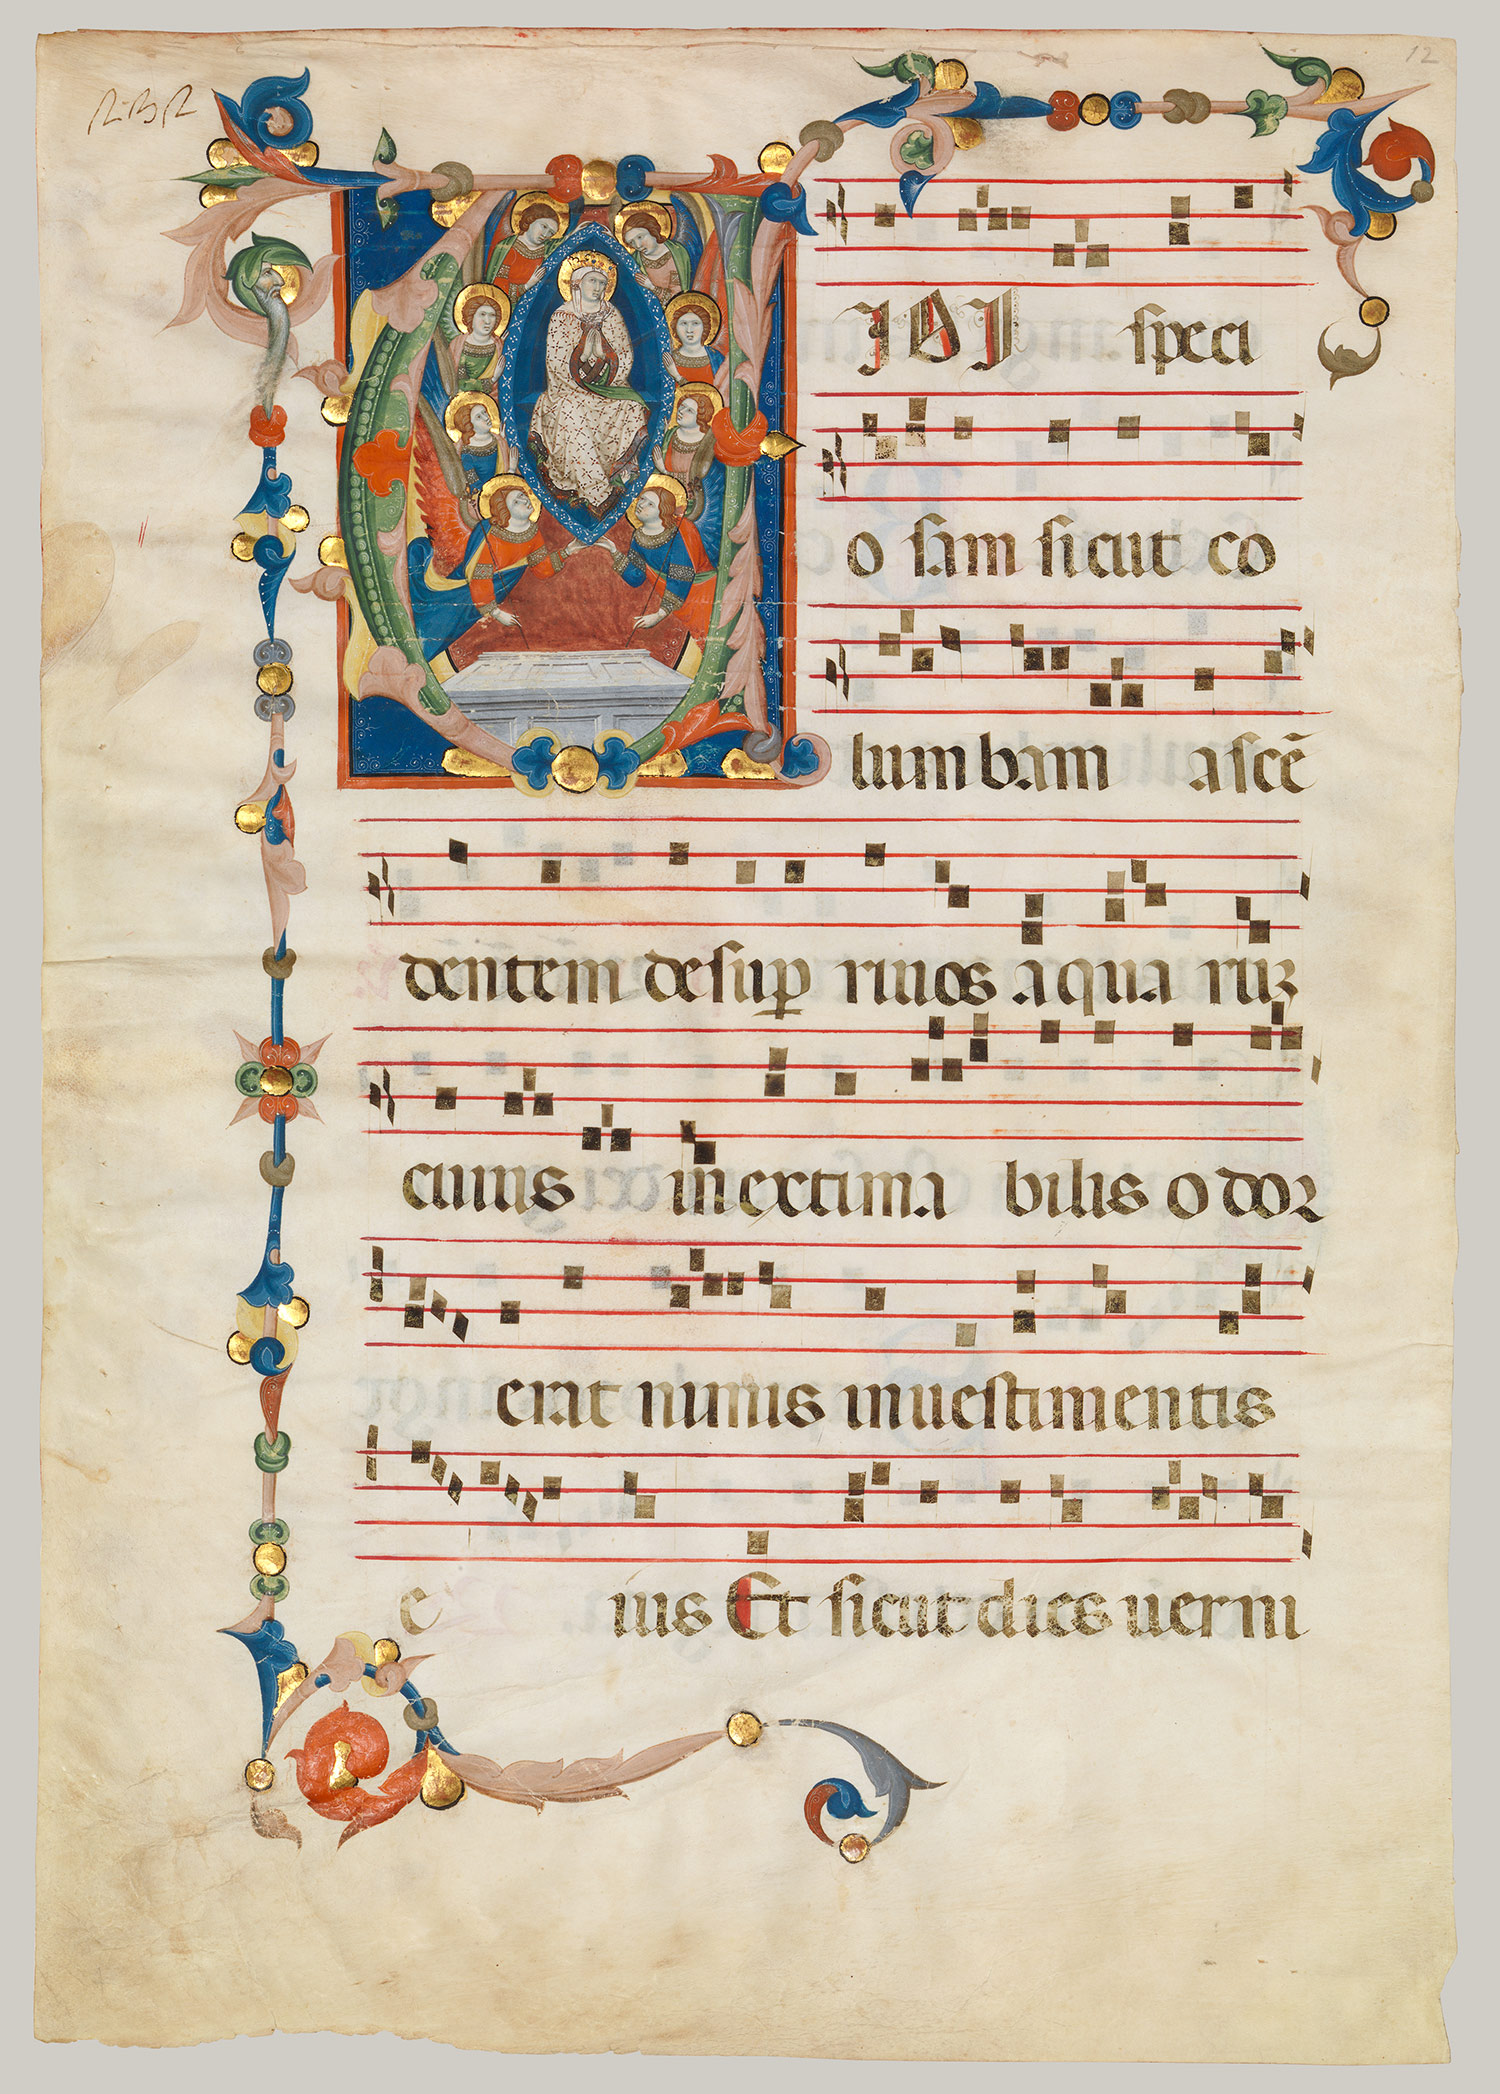 12
VIDI speci
o sam sicut co
lum bam ascē
dēntem desup̱ riuos aqua ruꝫ
cuius inextima bilis odor
erat nimis in uestimentis
e ius Et sicut dies uerni